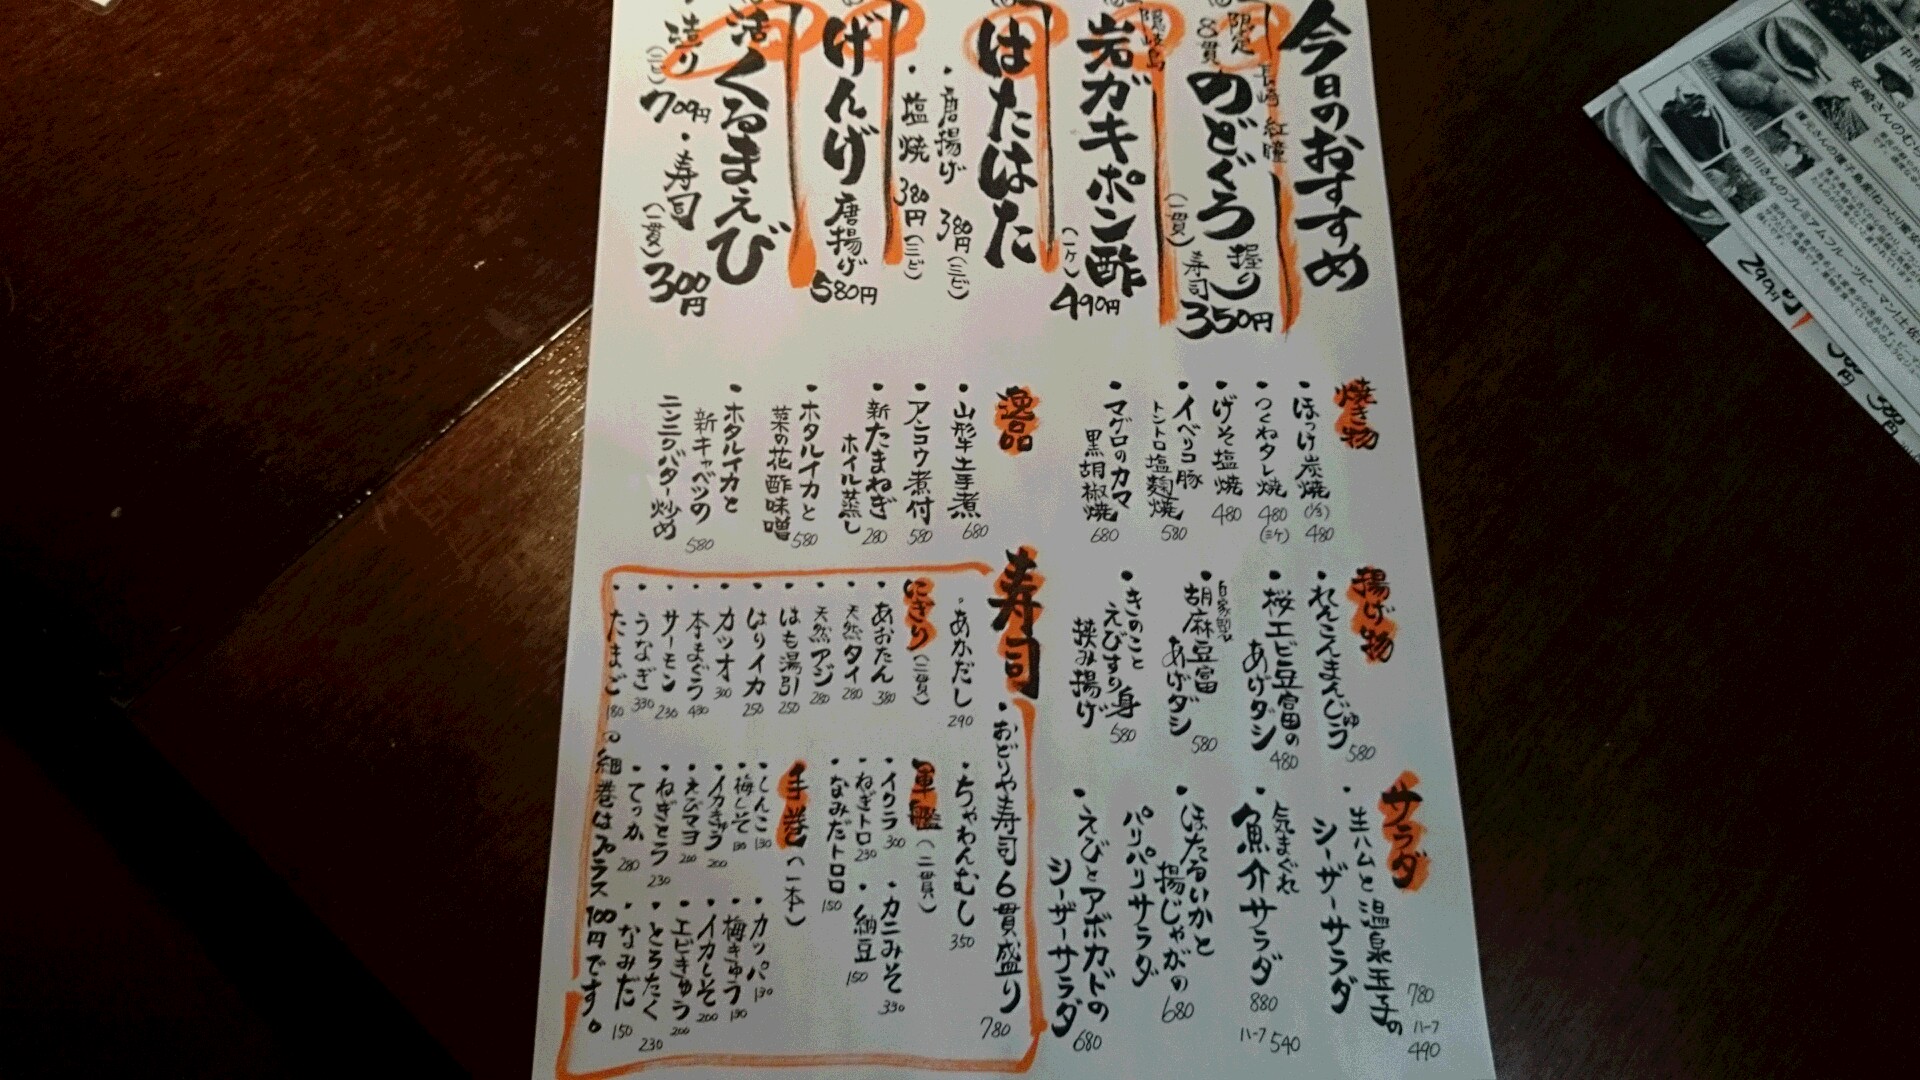 今日のおすすめ
限定
8貫
長崎 紅瞳
のどぐろ 握り寿司
(一貫)
350円
隠岐島
岩ガキポン酢
(一ケ)
490円
はたはた
・唐揚げ 380円(三ビ)
・塩焼 380円(三ビ)
げんげ 唐揚げ
580円
活くるまえび
・造り
・寿司
(一貫)
300円
焼き物
・ほっけ炭焼(1/2) 480
・つくねタレ焼 480(三ケ)
・げそ塩焼 480
・イベリコ豚
トントロ塩麹焼 580
・マグロのカマ
黒胡椒焼 680
逸品
・山形牛土手煮 680
・アンコウ煮付 580
・新たまねぎ
ホイル蒸し 280
・ホタルイカと
菜の花酢味噌 580
・ホタルイカと
新キャベツの
ニンニクバター炒め 580
揚げ物
・れんこんまんじゅう 580
・桜エビ豆富の
あげダシ 480
・自家製
胡麻豆富
あげダシ 580
・きのこと
えびすり身
挟み揚げ 580
サラダ
・生ハムと温泉玉子の
シーザーサラダ
780
ハーフ 490
・気まぐれ
魚介サラダ
880
ハーフ 540
・ほたるいかと
揚じゃがの
パリパリサラダ 680
・えびとアボカドの
シーザーサラダ 680
寿司
・おどりや寿司6貫盛り 780
・あかだし 290
・ちゃわんむし 350
にぎり(二貫)
・あおたん 380
・天然タイ 280
・天然アジ 280
・はも湯引 250
・はりイカ 250
・カツオ 300
・本まぐろ 430
・サーモン 230
・うなぎ 330
・たまご 180
軍艦(二貫)
・イクラ 300
・ねぎトロ 230
・なみだトロロ 150
・カニみそ 330
・納豆 150
手巻(一本)
・しんこ 130
・梅しそ 130
・イカきゅう 200
・えびマヨ 200
・ねぎとろ 230
・てっか 280
・カッパ 130
・梅きゅう 130
・イカしそ 200
・エビきゅう 200
・とろたく 230
・なみだ 150
細巻はプラス100円です。
安崎さんのむ
前川さんのプレミアムフルーツピーマン!土佐
290円